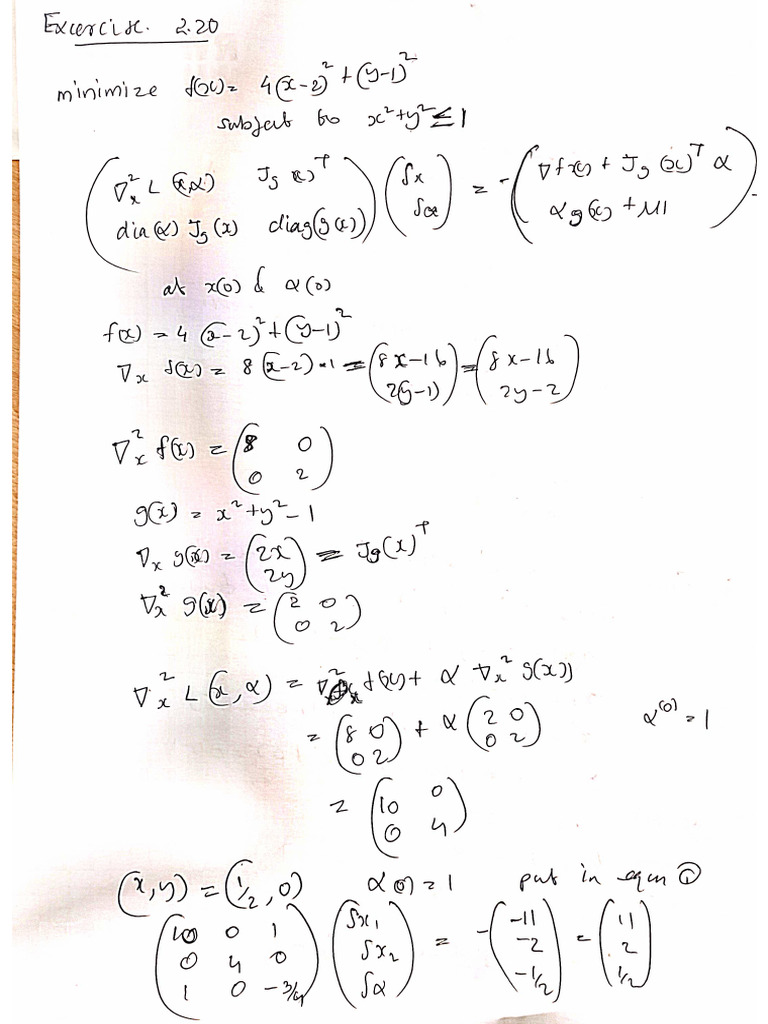 Excercise. 2.20
minimize f(x)= 4(x-2)² + (y-1)²
subject to x²+y² ≤ 1
( ∇ₓ² L (x,α)   J_g (x)ᵀ ; dia(α) J_g(x)   diag(g(x)) ) ( δx ; δα ) = - ( ∇f(x) + J_g (x)ᵀ α ; αg(x) + μ1 )
at x(0) & α(0)
f(x) = 4 (x-2)² + (y-1)²
∇ₓ f(x) = 8(x-2)·1 = ( 8x-16 ; 2(y-1) ) = ( 8x-16 ; 2y-2 )
∇ₓ² f(x) = ( 8 0 ; 0 2 )
g(x) = x²+y²-1
∇ₓ g(x) = ( 2x ; 2y ) = Jg(x)ᵀ
∇ₓ² g(x) = ( 2 0 ; 0 2 )
∇ₓ² L (x,α) = ∇²ₓ f(x) + α ∇ₓ² g(x))
= ( 8 0 ; 0 2 ) + α ( 2 0 ; 0 2 )   α⁽⁰⁾ = 1
= ( 10 0 ; 0 4 )
(x,y) = (1/2, 0)   α(0) = 1   put in eqn ①
( 10 0 1 ; 0 4 0 ; 1 0 -3/4 ) ( δx₁ ; δx₂ ; δα ) = - ( -11 ; -2 ; -1/2 ) = ( 11 ; 2 ; 1/2 )